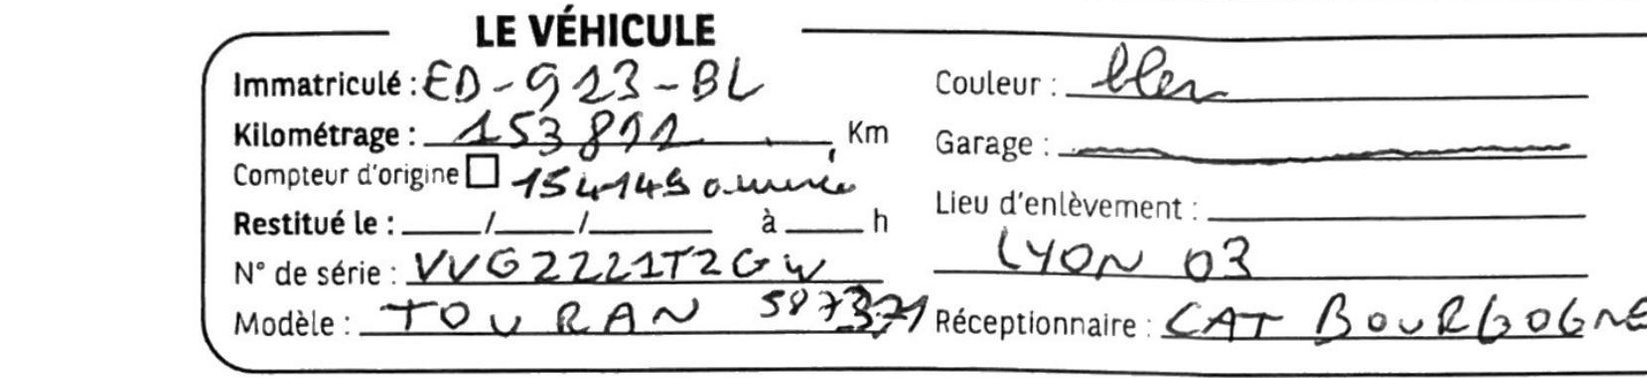 LE VÉHICULE
Immatriculé : ED-923-BL
Kilométrage : 153892 Km
Compteur d'origine ☐ 154149
Restitué le : ___/___/___ à ___ h
N° de série : VVG2221T2GW
Modèle : TOURAN 587371
Couleur : bleu
Garage :
Lieu d'enlèvement :
LYON 03
Réceptionnaire : CAT BOURGOGNE